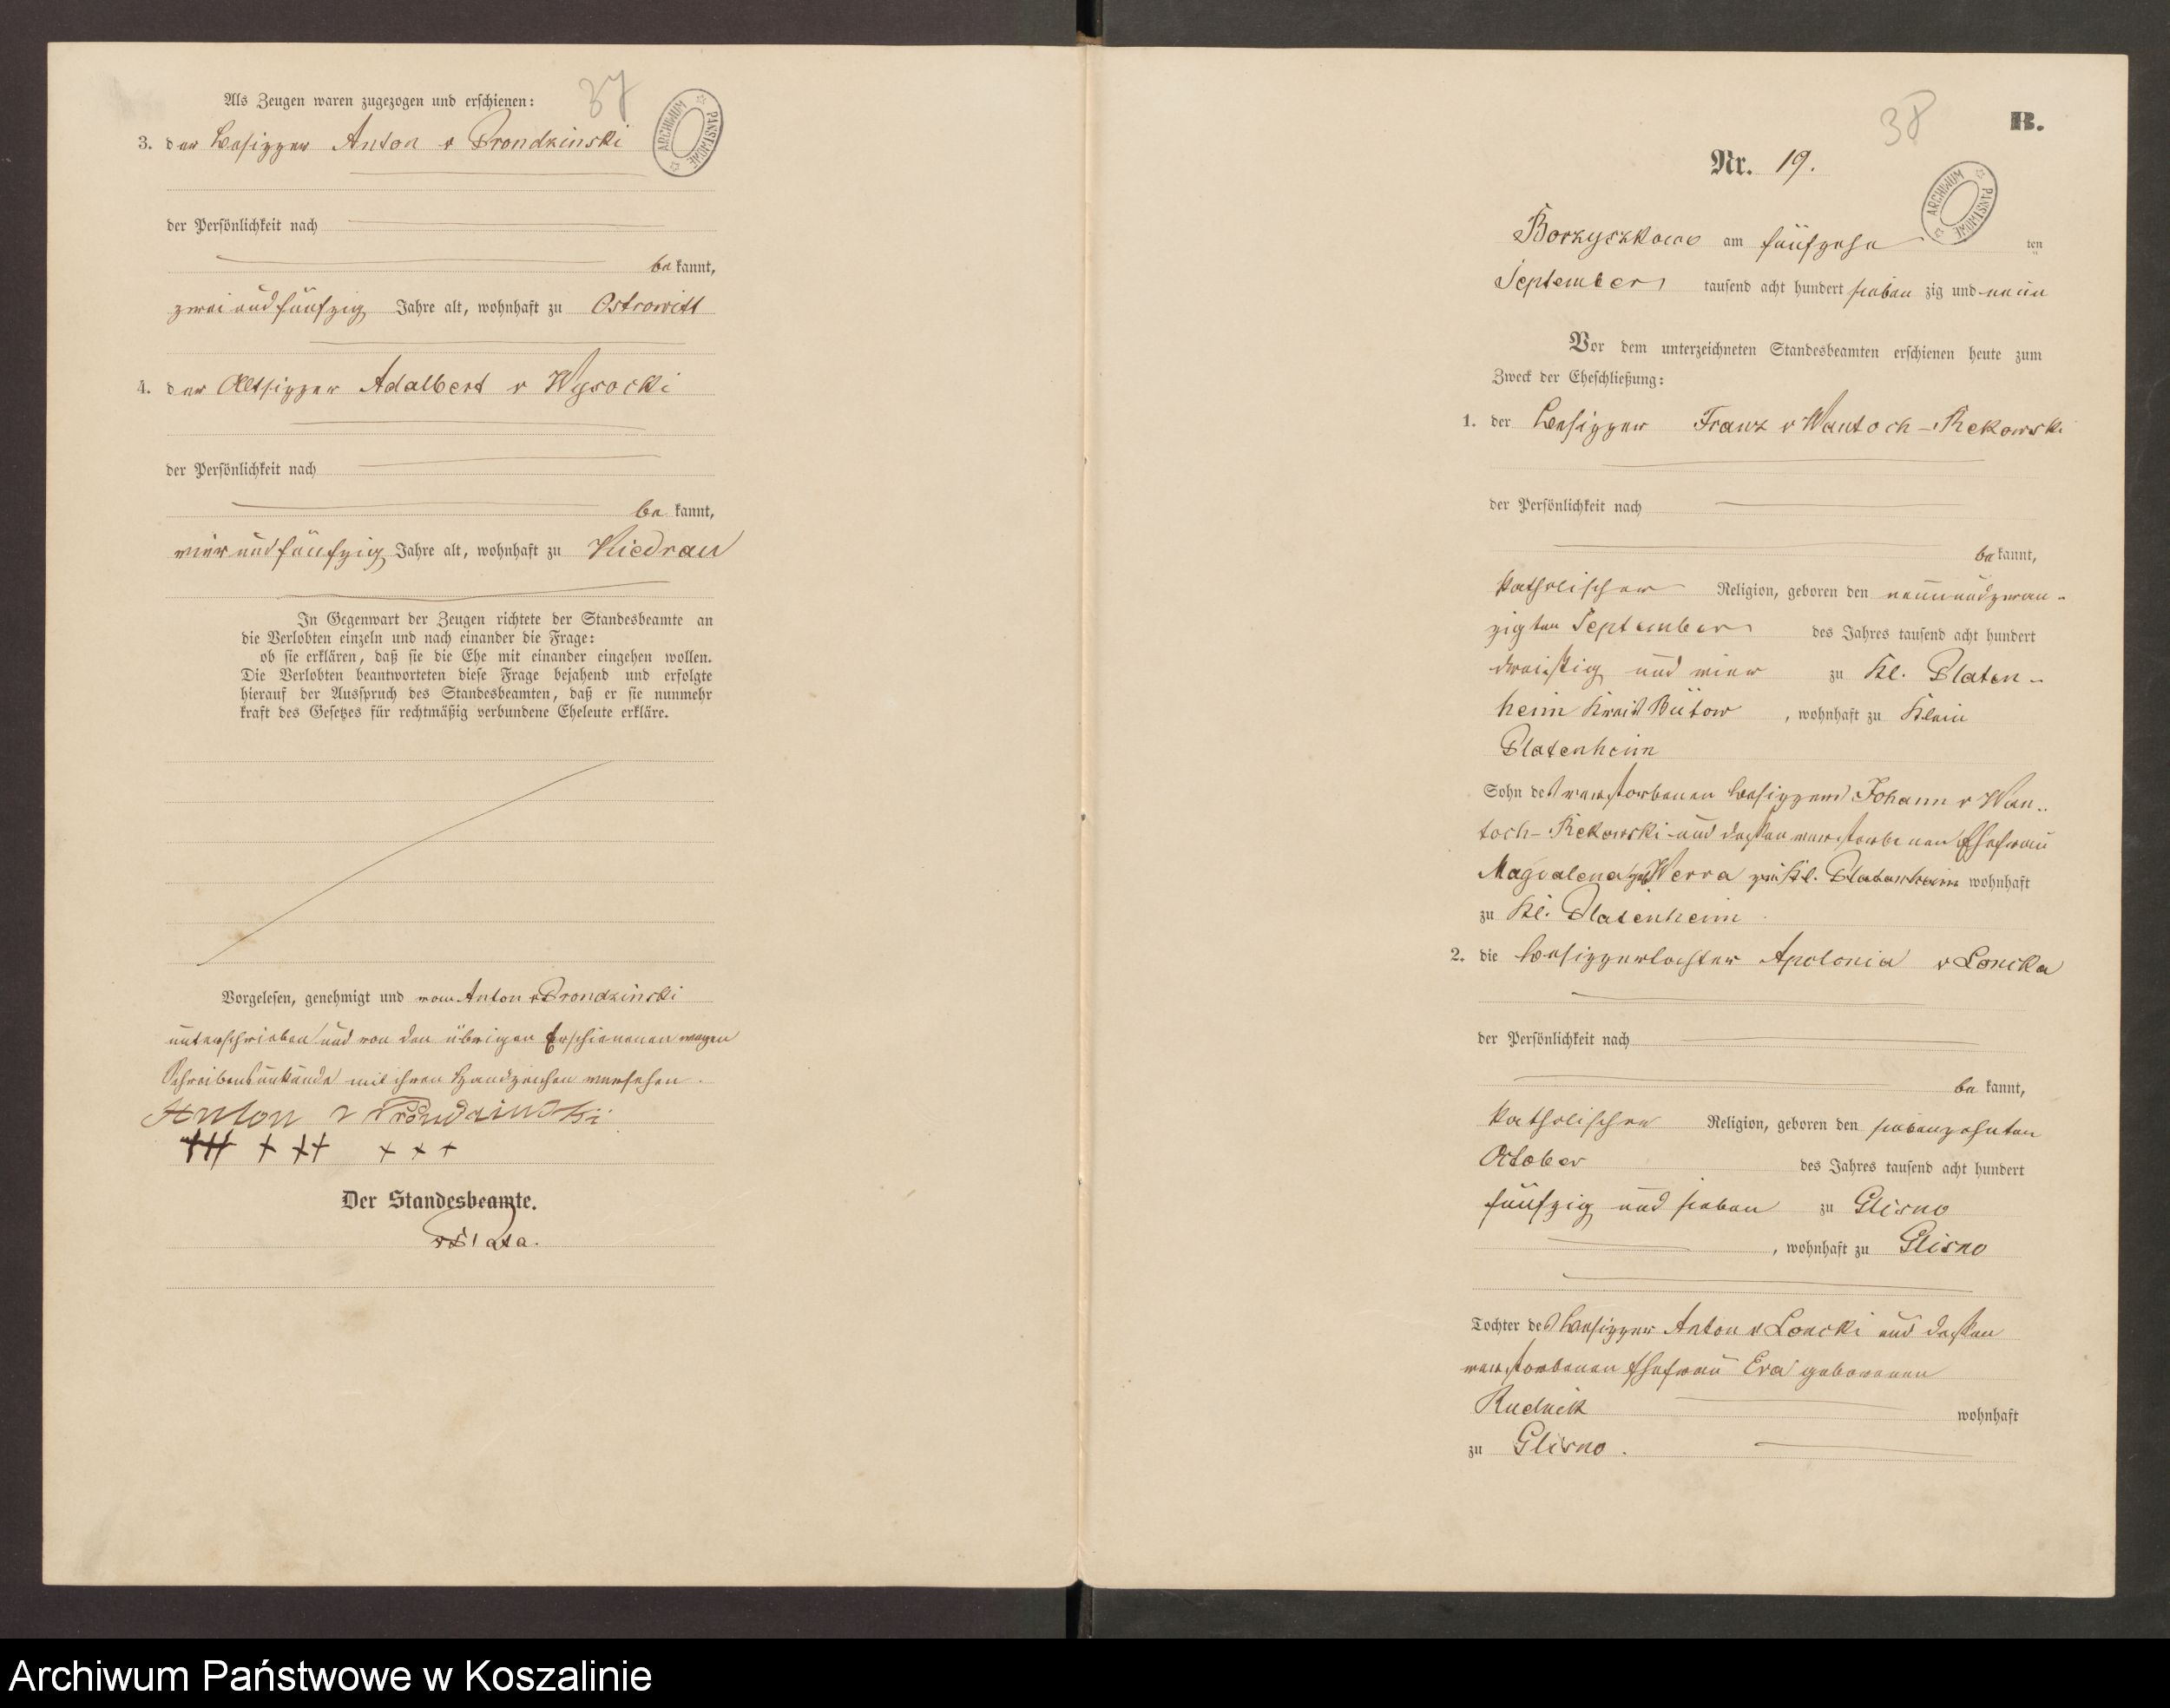 Als Zeugen waren zugezogen und erschienen:
37
ARCHIWUM PAŃSTWOWE
3. der Besitzer Anton v Prondzinski
der Persönlichkeit nach
be kannt,
zwei und fünfzig Jahre alt, wohnhaft zu Ostrowitt
4. der Altsitzer Adalbert v Wysocki
der Persönlichkeit nach
be kannt,
vier und fünfzig Jahre alt, wohnhaft zu Kiedrau
In Gegenwart der Zeugen richtete der Standesbeamte an
die Verlobten einzeln und nach einander die Frage:
ob sie erklären, daß sie die Ehe mit einander eingehen wollen.
Die Verlobten beantworteten diese Frage bejahend und erfolgte
hierauf der Ausspruch des Standesbeamten, daß er sie nunmehr
kraft des Gesetzes für rechtmäßig verbundene Eheleute erkläre.
Vorgelesen, genehmigt und von Anton v Prondzinski
unterschrieben und von den übrigen Erschienenen wegen
Schreibensunkunde mit ihren Handzeichen versehen.
Anton v Prondzinski
+++ + ++ + + +
Der Standesbeamte.
38
B.
Nr. 19.
ARCHIWUM PAŃSTWOWE
Borzyszkowo am fünfzehn ten
September tausend acht hundert sieben zig und neun
Vor dem unterzeichneten Standesbeamten erschienen heute zum
Zweck der Eheschließung:
1. der Besitzer Franz v Wantoch-Rekowski
der Persönlichkeit nach
be kannt,
katholischer Religion, geboren den neunundzwan-
zigten September des Jahres tausend acht hundert
dreißig und vier zu Kl. Platen-
heim Kreis Bütow, wohnhaft zu Klein
Platenheim
Sohn des verstorbenen Besitzers Johann v Wan-
toch-Rekowski und dessen verstorbenen Ehefrau
Magdalena geb Werra zu Kl. Platenheim wohnhaft
zu Kl. Platenheim
2. die Besitzertochter Apolonia v Loncka
der Persönlichkeit nach
be kannt,
katholischen Religion, geboren den siebenzehnten
October des Jahres tausend acht hundert
fünfzig und sieben zu Glisno
, wohnhaft zu Glisno
Tochter des Besitzer Anton v Loncki und dessen
verstorbenen Ehefrau Eva geborenen
Rudnik wohnhaft
zu Glisno.
Archiwum Państwowe w Koszalinie